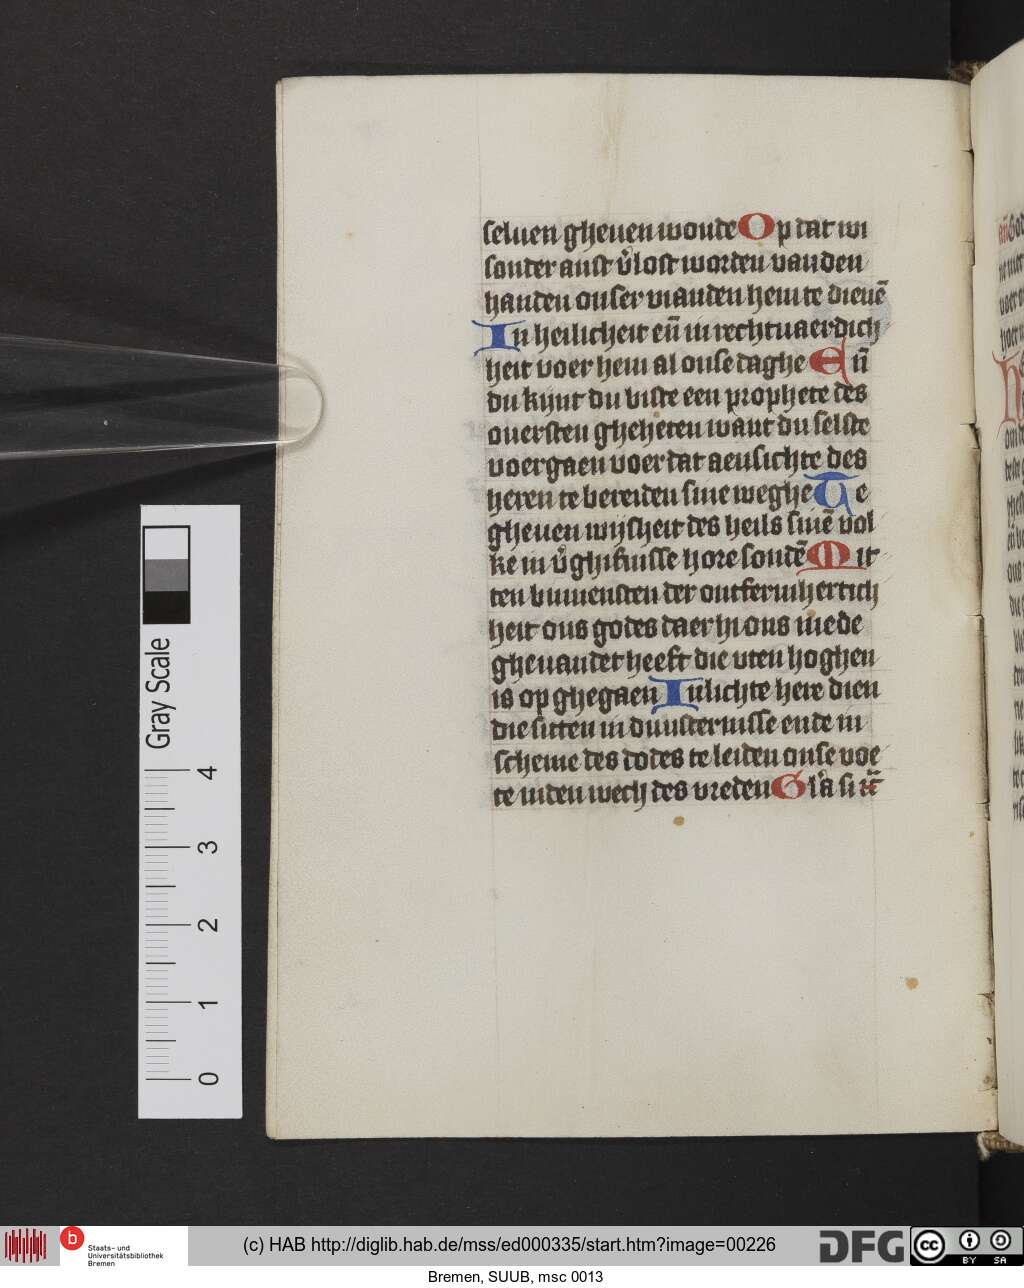 seluen gheuen woude Op dat wi
sonder anst v̉lost worden vanden
handen onser vianden hem te dienē
In heilicheit eñ in rechtuaerdich
heit voer hem al onse daghe Eñ
du kijnt du biste een prophete des
ouersten gheheten want du selste
voergaen voer dat aensichte des
heren te bereiden sine weghe Te
gheuen wijsheit des heils sinē vol
ke in v̉ghifnisse hore sondē Mit
ten binnensten der ontfermhertich
heit ons godes daer hi ons mede
ghevandet heeft die vten hoghen
is op ghegaen Inlichte here dien
die sitten in duusternisse ende in
scheme des dodes te leiden onse voe
te inden wech des vreden Gl'a si
Gray Scale
4
3
2
1
0
b Staats- und
Universitätsbibliothek
Bremen
(c) HAB http://diglib.hab.de/mss/ed000335/start.htm?image=00226
DFG
cc BY SA
Bremen, SUUB, msc 0013